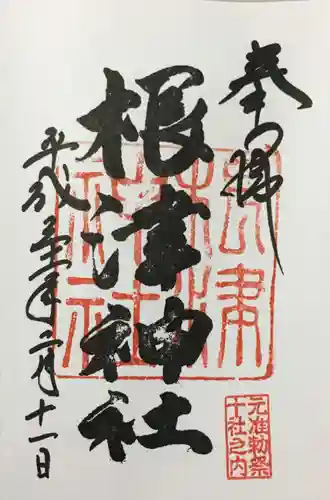 奉拝
根津神社
平成三十一年二月十一日
元准勅祭
十社之内